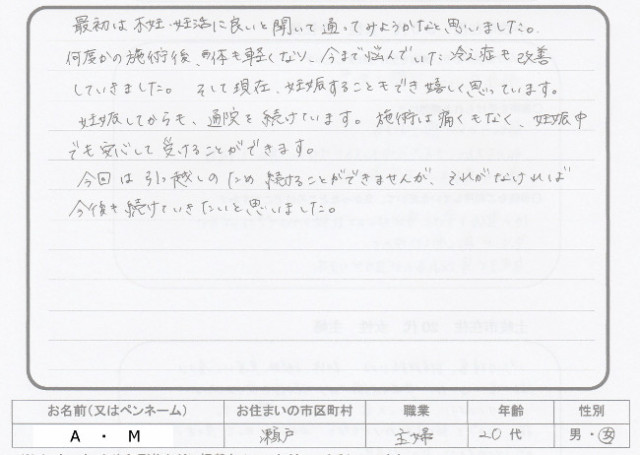 最初は不妊・妊活に良いと聞いて通ってみようかなと思いました。
何度かの施術後、体も軽くなり、今まで悩んでいた冷え症も改善
していきました。 そして現在、妊娠することもでき嬉しく思っています。
妊娠してからも、通院を続けています。施術は痛くもなく、妊娠中
でも安心して受けることができます。
今回は引っ越しのため続けることができませんが、それがなければ
今後も続けていきたいと思いました。
お名前(又はペンネーム) お住まいの市区町村 職業 年齢 性別
A ・ M 瀬戸 主婦 20代 男・女